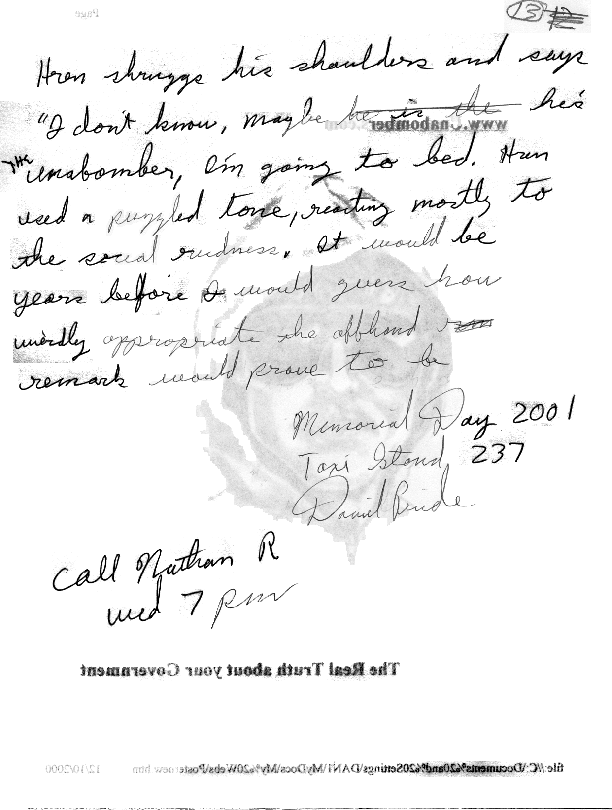 Page
13 12
Hren shruggs his shoulders and says
"I don't know, maybe he is the he's
www.Unabomber.com
THE Unabomber, I'm going to bed. Hren
used a puzzled tone, reacting mostly to
the social rudness. It would be
years before I would guess how
weirdly appropriate the offhand
remark would prove to be
Memorial Day 2001
Taxi Stand 237
call Nathan R
wed 7 pm
The Real Truth about your Government
file://C:\Documents%20and%20Settings\DANI\MyDocs\My%20Webs\Posts 12/10/2000